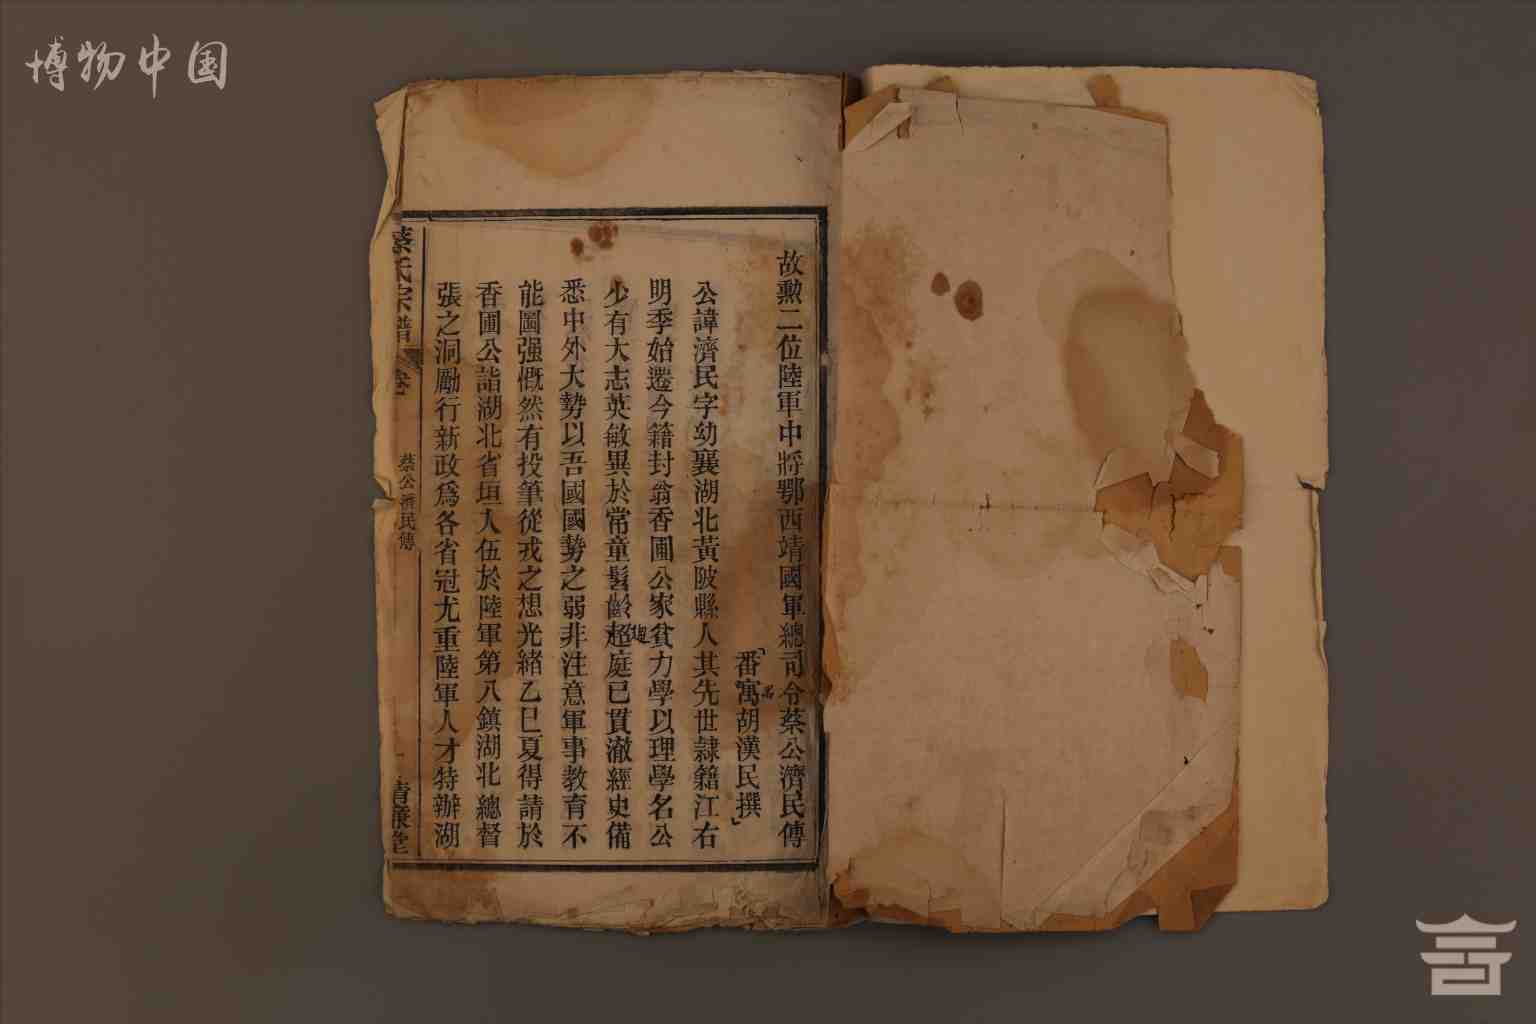 博物中国
故勲二位陸軍中將鄂西靖國軍總司令蔡公濟民傳
番寓胡漢民撰
公諱濟民字幼襄湖北黃陂縣人其先世隸籍江右
明季始遷今籍封翁香圃公家貧力學以理學名公
少有大志英敏異於常童髫齡趨庭已貫澈經史備
悉中外大勢以吾國國勢之弱非注意軍事教育不
能圖强慨然有投筆從戎之想光緒乙巳夏得請於
香圃公詣湖北省垣入伍於陸軍第八鎮湖北總督
張之洞勵行新政爲各省冠尤重陸軍人才特辦湖
蔡氏宗譜
卷
蔡公濟民傳
一